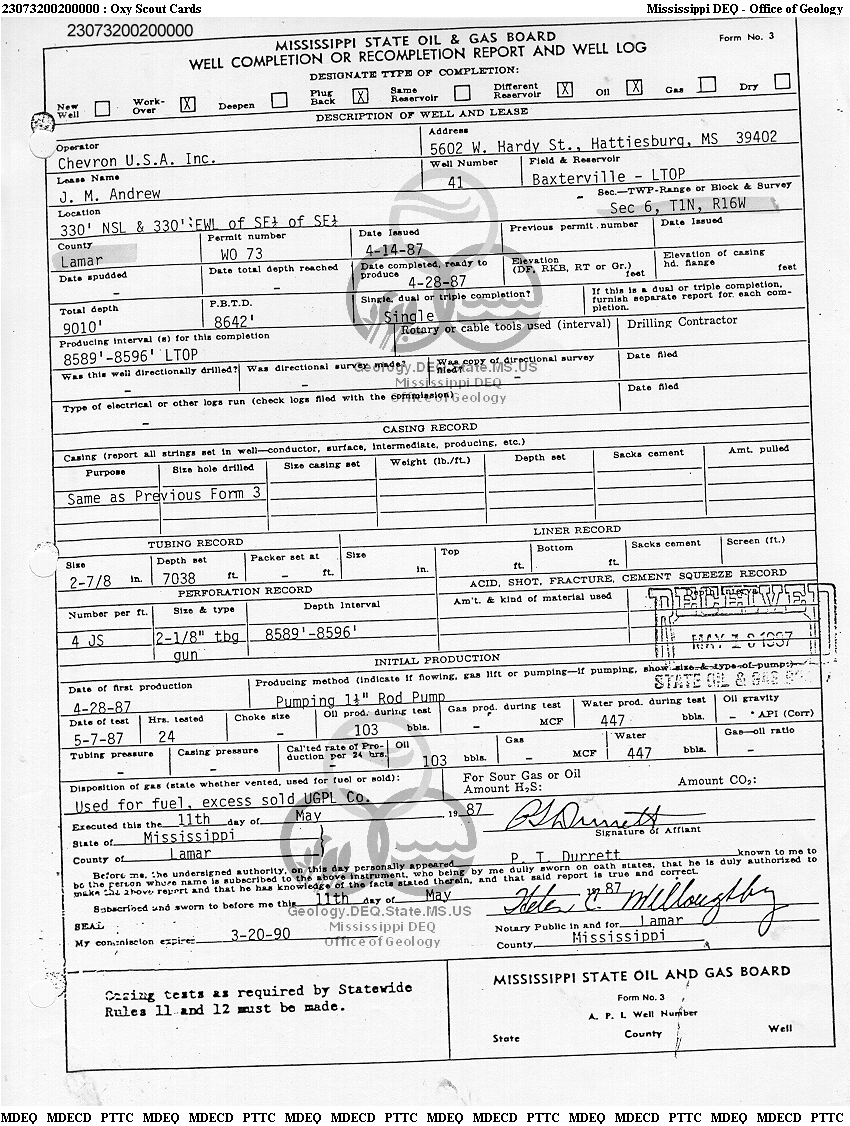 23073200200000 : Oxy Scout Cards Mississippi DEQ - Office of Geology
23073200200000
MISSISSIPPI STATE OIL & GAS BOARD Form No. 3
WELL COMPLETION OR RECOMPLETION REPORT AND WELL LOG
DESIGNATE TYPE OF COMPLETION:
New Well Work-Over X Deepen Plug Back X Same Reservoir Different Reservoir X Oil X Gas Dry
DESCRIPTION OF WELL AND LEASE
Operator Address
Chevron U.S.A. Inc. 5602 W. Hardy St., Hattiesburg, MS 39402
Lease Name Well Number Field & Reservoir
J. M. Andrew 41 Baxterville - LTOP
Location Sec.—TWP-Range or Block & Survey
330' NSL & 330' EWL of SE¼ of SE¼ Sec 6, T1N, R16W
County Permit number Date Issued Previous permit number Date Issued
Lamar WO 73 4-14-87
Date spudded Date total depth reached Date completed, ready to produce Elevation (DF, RKB, RT or Gr.) feet Elevation of casing hd. flange feet
- - 4-28-87
Total depth P.B.T.D. Single, dual or triple completion? If this is a dual or triple completion, furnish separate report for each completion.
9010' 8642' Single
Producing interval (s) for this completion Rotary or cable tools used (interval) Drilling Contractor
8589'-8596' LTOP
Was this well directionally drilled? Was directional survey made? Was copy of directional survey filed? Date filed
- - -
Geology.DEQ.State.MS.US
Mississippi DEQ
Office of Geology
Type of electrical or other logs run (check logs filed with the commission) Date filed
-
CASING RECORD
Casing (report all strings set in well—conductor, surface, intermediate, producing, etc.)
Purpose Size hole drilled Size casing set Weight (lb./ft.) Depth set Sacks cement Amt. pulled
Same as Previous Form 3
TUBING RECORD LINER RECORD
Size Depth set Packer set at Size Top Bottom Sacks cement Screen (ft.)
2-7/8 in. 7038 ft. - ft. in. ft. ft.
PERFORATION RECORD ACID, SHOT, FRACTURE, CEMENT SQUEEZE RECORD
Number per ft. Size & type Depth Interval Am't. & kind of material used Depth Interval
4 JS 2-1/8" tbg gun 8589'-8596'
RECEIVED
MAY 1987
STATE OIL & GAS
INITIAL PRODUCTION
Date of first production Producing method (indicate if flowing, gas lift or pumping—if pumping, show size & type of pump:)
4-28-87 Pumping 1½" Rod Pump
Date of test Hrs. tested Choke size Oil prod. during test Gas prod. during test Water prod. during test Oil gravity
5-7-87 24 - 103 bbls. - MCF 447 bbls. - ° API (Corr)
Tubing pressure Casing pressure Cal'ted rate of Production per 24 hrs. Oil Gas Water Gas—oil ratio
- - 103 bbls. - MCF 447 bbls. -
Disposition of gas (state whether vented, used for fuel or sold): For Sour Gas or Oil
Amount H₂S: Amount CO₂:
Used for fuel, excess sold UGPL Co.
Executed this the 11th day of May 19 87
State of Mississippi Signature of Affiant
County of Lamar
Before me, the undersigned authority, on this day personally appeared P. T. Durrett known to me to
be the person whose name is subscribed to the above instrument, who being by me duly sworn on oath states, that he is duly authorized to
make the above report and that he has knowledge of the facts stated therein, and that said report is true and correct.
Subscribed and sworn to before me this 11th day of May 87
Helen C. Willoughby
Geology.DEQ.State.MS.US
Mississippi DEQ
Office of Geology
SEAL Notary Public in and for Lamar
My commission expires 3-20-90 County, Mississippi
Casing tests as required by Statewide
Rules 11 and 12 must be made.
MISSISSIPPI STATE OIL AND GAS BOARD
Form No. 3
A. P. I. Well Number
State County Well
MDEQ MDECD PTTC MDEQ MDECD PTTC MDEQ MDECD PTTC MDEQ MDECD PTTC MDEQ MDECD PTTC MDEQ MDECD PTTC